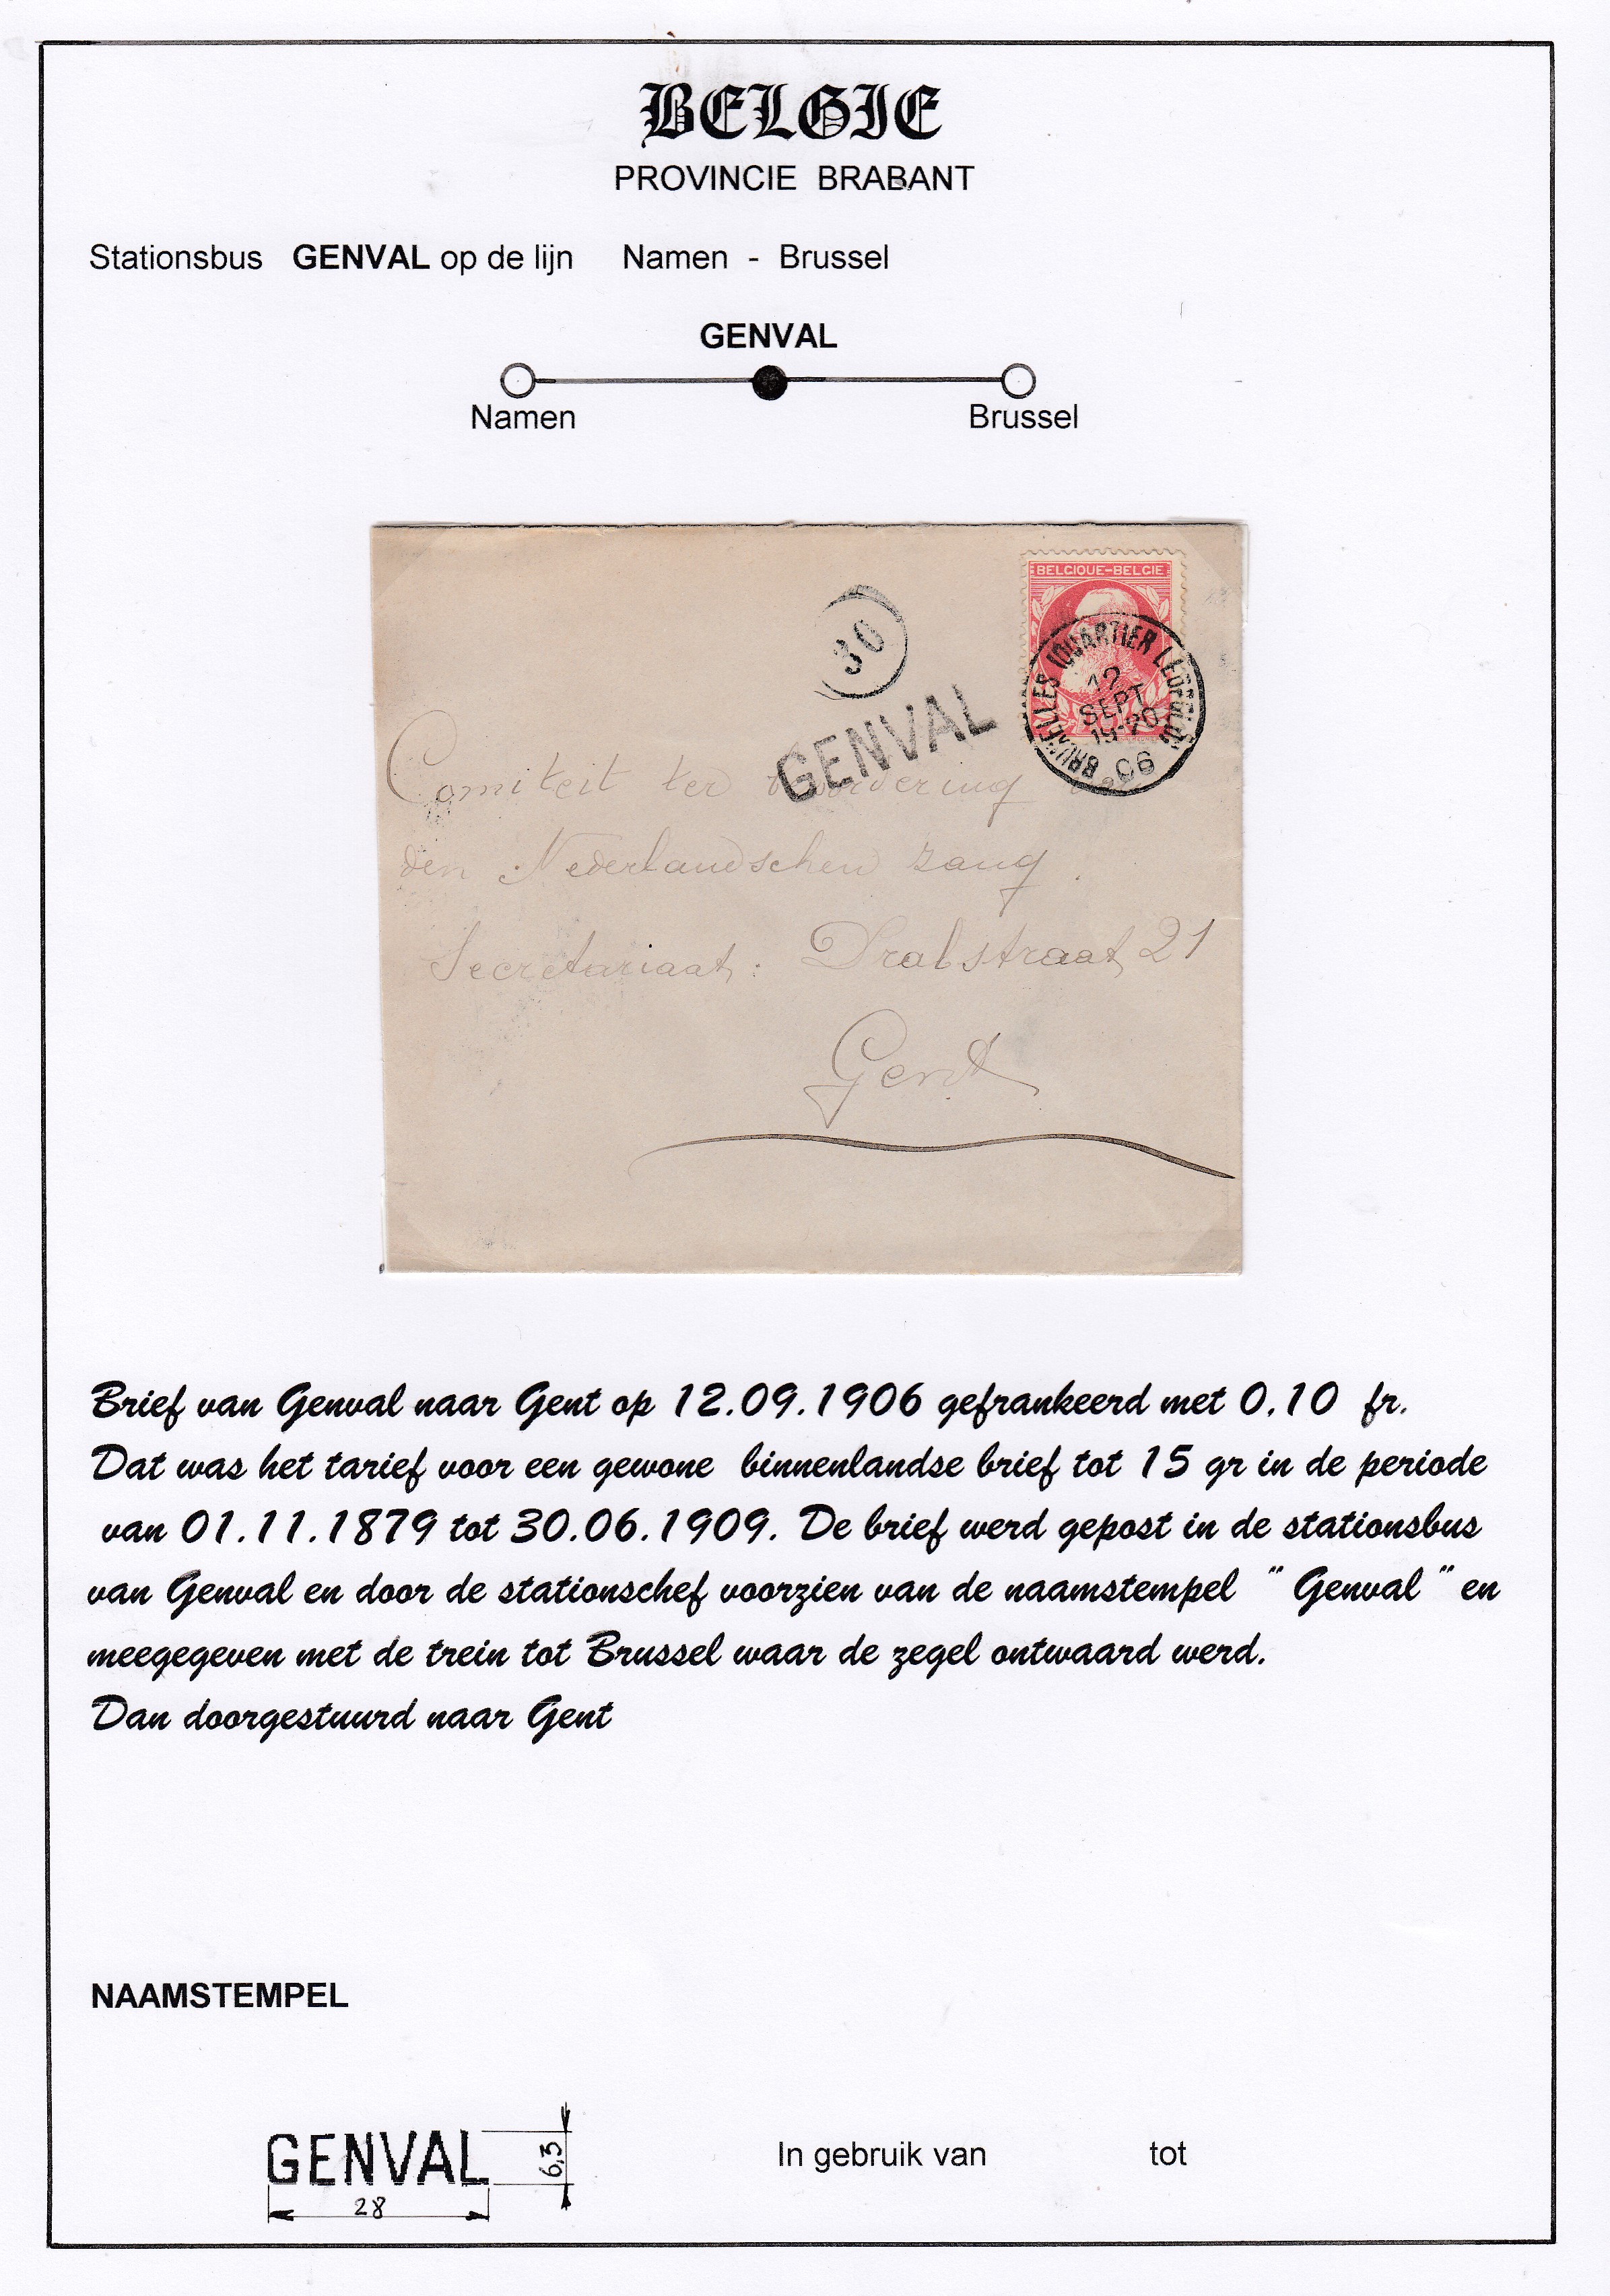 BELGIE
PROVINCIE BRABANT
Stationsbus GENVAL op de lijn Namen - Brussel
GENVAL
Namen Brussel
BELGIQUE-BELGIE
30
BRUXELLES (QUARTIER LÉOPOLD)
12
SEPT
19-20
06
GENVAL
Comiteit ter bevordering
den Nederlandschen zang.
Secretariaat: straat 21
Gent
Brief van Genval naar Gent op 12.09.1906 gefrankeerd met 0,10 fr.
Dat was het tarief voor een gewone binnenlandse brief tot 15 gr in de periode
van 01.11.1879 tot 30.06.1909. De brief werd gepost in de stationsbus
van Genval en door de stationschef voorzien van de naamstempel " Genval " en
meegegeven met de trein tot Brussel waar de zegel ontwaard werd.
Dan doorgestuurd naar Gent
NAAMSTEMPEL
GENVAL 6,3
28
In gebruik van tot